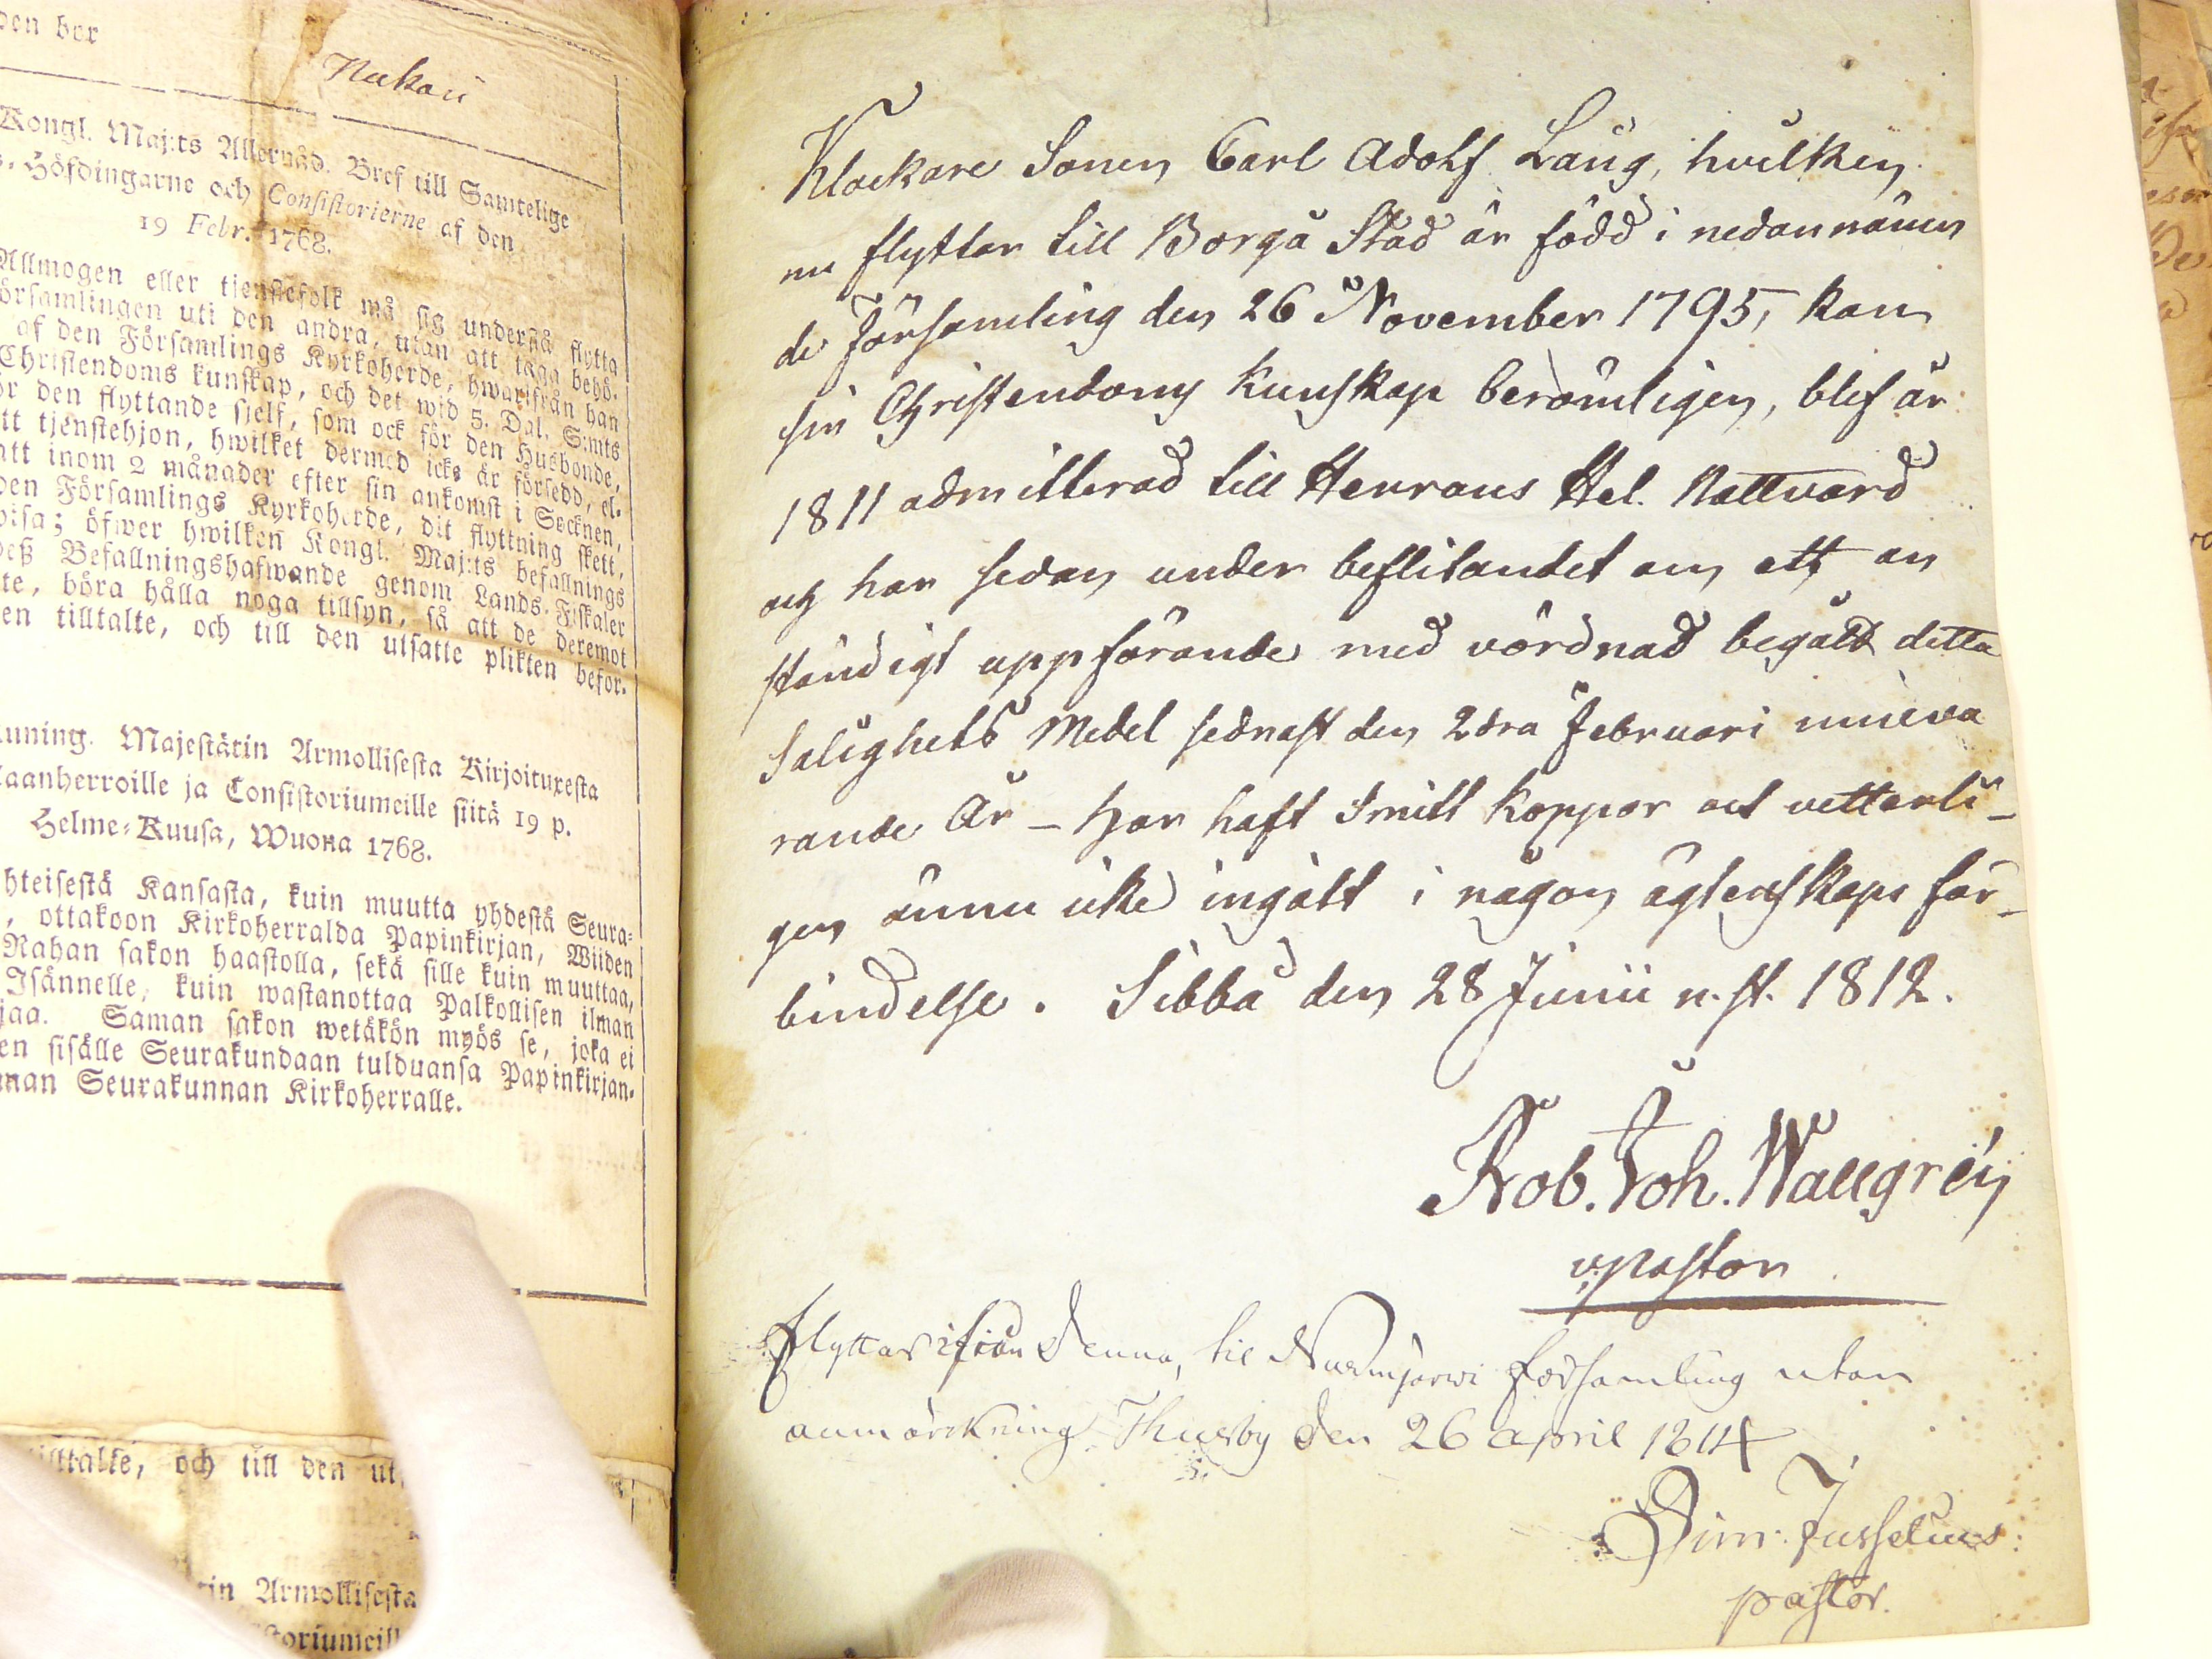 den ber
Nukari
Kongl. Maj:ts Allernåd. Bref till Samtelige
s-Höfdingarne och Consistorierne af den
19 Febr. 1768.
Allmogen eller tjenstefolk må sig understå flytta
örsamlingen uti den andra, utan att taga behö-
af den Församlings Kyrkoherde, hwarifrån han
Christendoms kunskap, och det wid 5. Dal. S:mts
ör den flyttande sjelf, som ock för den Husbonde,
itt tjenstehjon, hwilket dermed icke är försedd, el-
att inom 2 månader efter sin ankomst i Socknen,
den Församlings Kyrkoherde, dit flyttning skett,
visa; öfwer hwilken Kongl. Maj:ts befallnings
deß Befallningshafwande genom Lands-Fiskaler
te, böra hålla noga tillsyn, så att de deremot
en tilltalte, och till den utsatte plikten befor-
uning. Majestätin Armollisesta Kirjoituxesta
aanherroille ja Consistoriumeille siitä 19 p.
Helme-Kuusa, Wuona 1768.
hteisestä Kansasta, kuin muutta yhdestä Seura-
, ottakoon Kirkoherralda Papinkirjan, Wiiden
Rahan sakon haastolla, sekä sille kuin muuttaa,
Isännelle, kuin wastanottaa Palkollisen ilman
jaa. Saman sakon wetäkön myös se, joka ei
en sisälle Seurakundaan tulduansa Papinkirjan-
man Seurakunnan Kirkoherralle.
tilltalte, och till den ut
in Armollisesta
storiumeill
Klockare Sonen Carl Adolf Lång, hvilken
nu flyttar till Borgå Stad är född i nedannämn
de Församling den 26 November 1795, kan
sin Christendoms kunskap berömligen, blef år
1811 admitterad till Herrans Hel. Nattvard
och har sedan under beflitandet om ett an
ständigt uppförande med vördnad begått detta
Salighets Medel sednast den 2dra Februari inneva
rande År – har haft Smitt koppor oct vetterli-
gen ännu icke ingått i någon ägtenskaps för-
bindelse. Sibbå den 28 Junii n. st. 1812.
Rob. Joh. Wallgrén
v. Pastor
Flyttar ifrån denna, til Nurmjärwi församling utan
anmärckning Thusby den 26 April 1814
Sim: Jusselius
pastor.